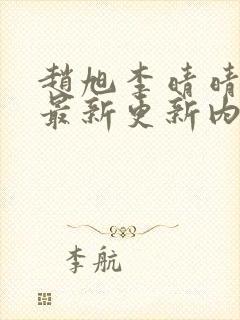 趙旭李晴晴
最新更新內
李航